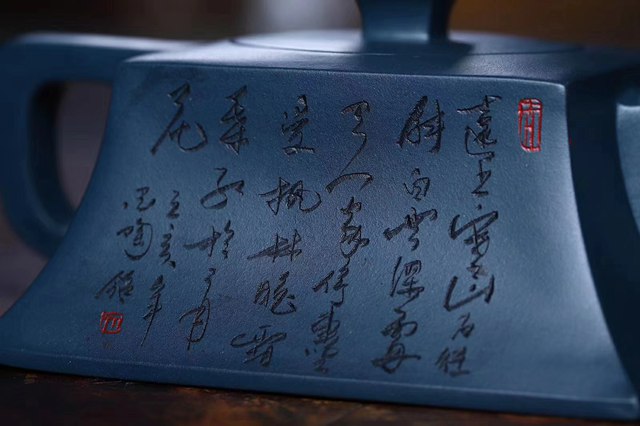 遠上寒山石徑
斜白雲深處
有人家停車坐
愛枫林晚霜
葉红於二月
花
亥年
陶